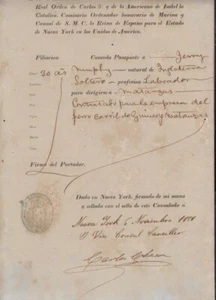 Real Orden de Carlos 3º y de la Americana de Isabel la
Católica, Comisario Ordenador honorario de Marina y
Consul de S. M. C. la Reina de España para el Estado
de Nueva York en los Unidos de América.
Filiacion
Concedo Pasaporte á Jeremy
20 añs
Murphy natural de
Soltero profesion Labrador
para dirigirse á Matanzas
Contratado para la empresa del
ferro carril de Matanzas
Firma del Portador.
Dado en Nueva York, firmado de mi mano
y sellado con el sello de este Consulado á
Nueva York 5 Noviembre
El Vice Consul Canciller
Carlos